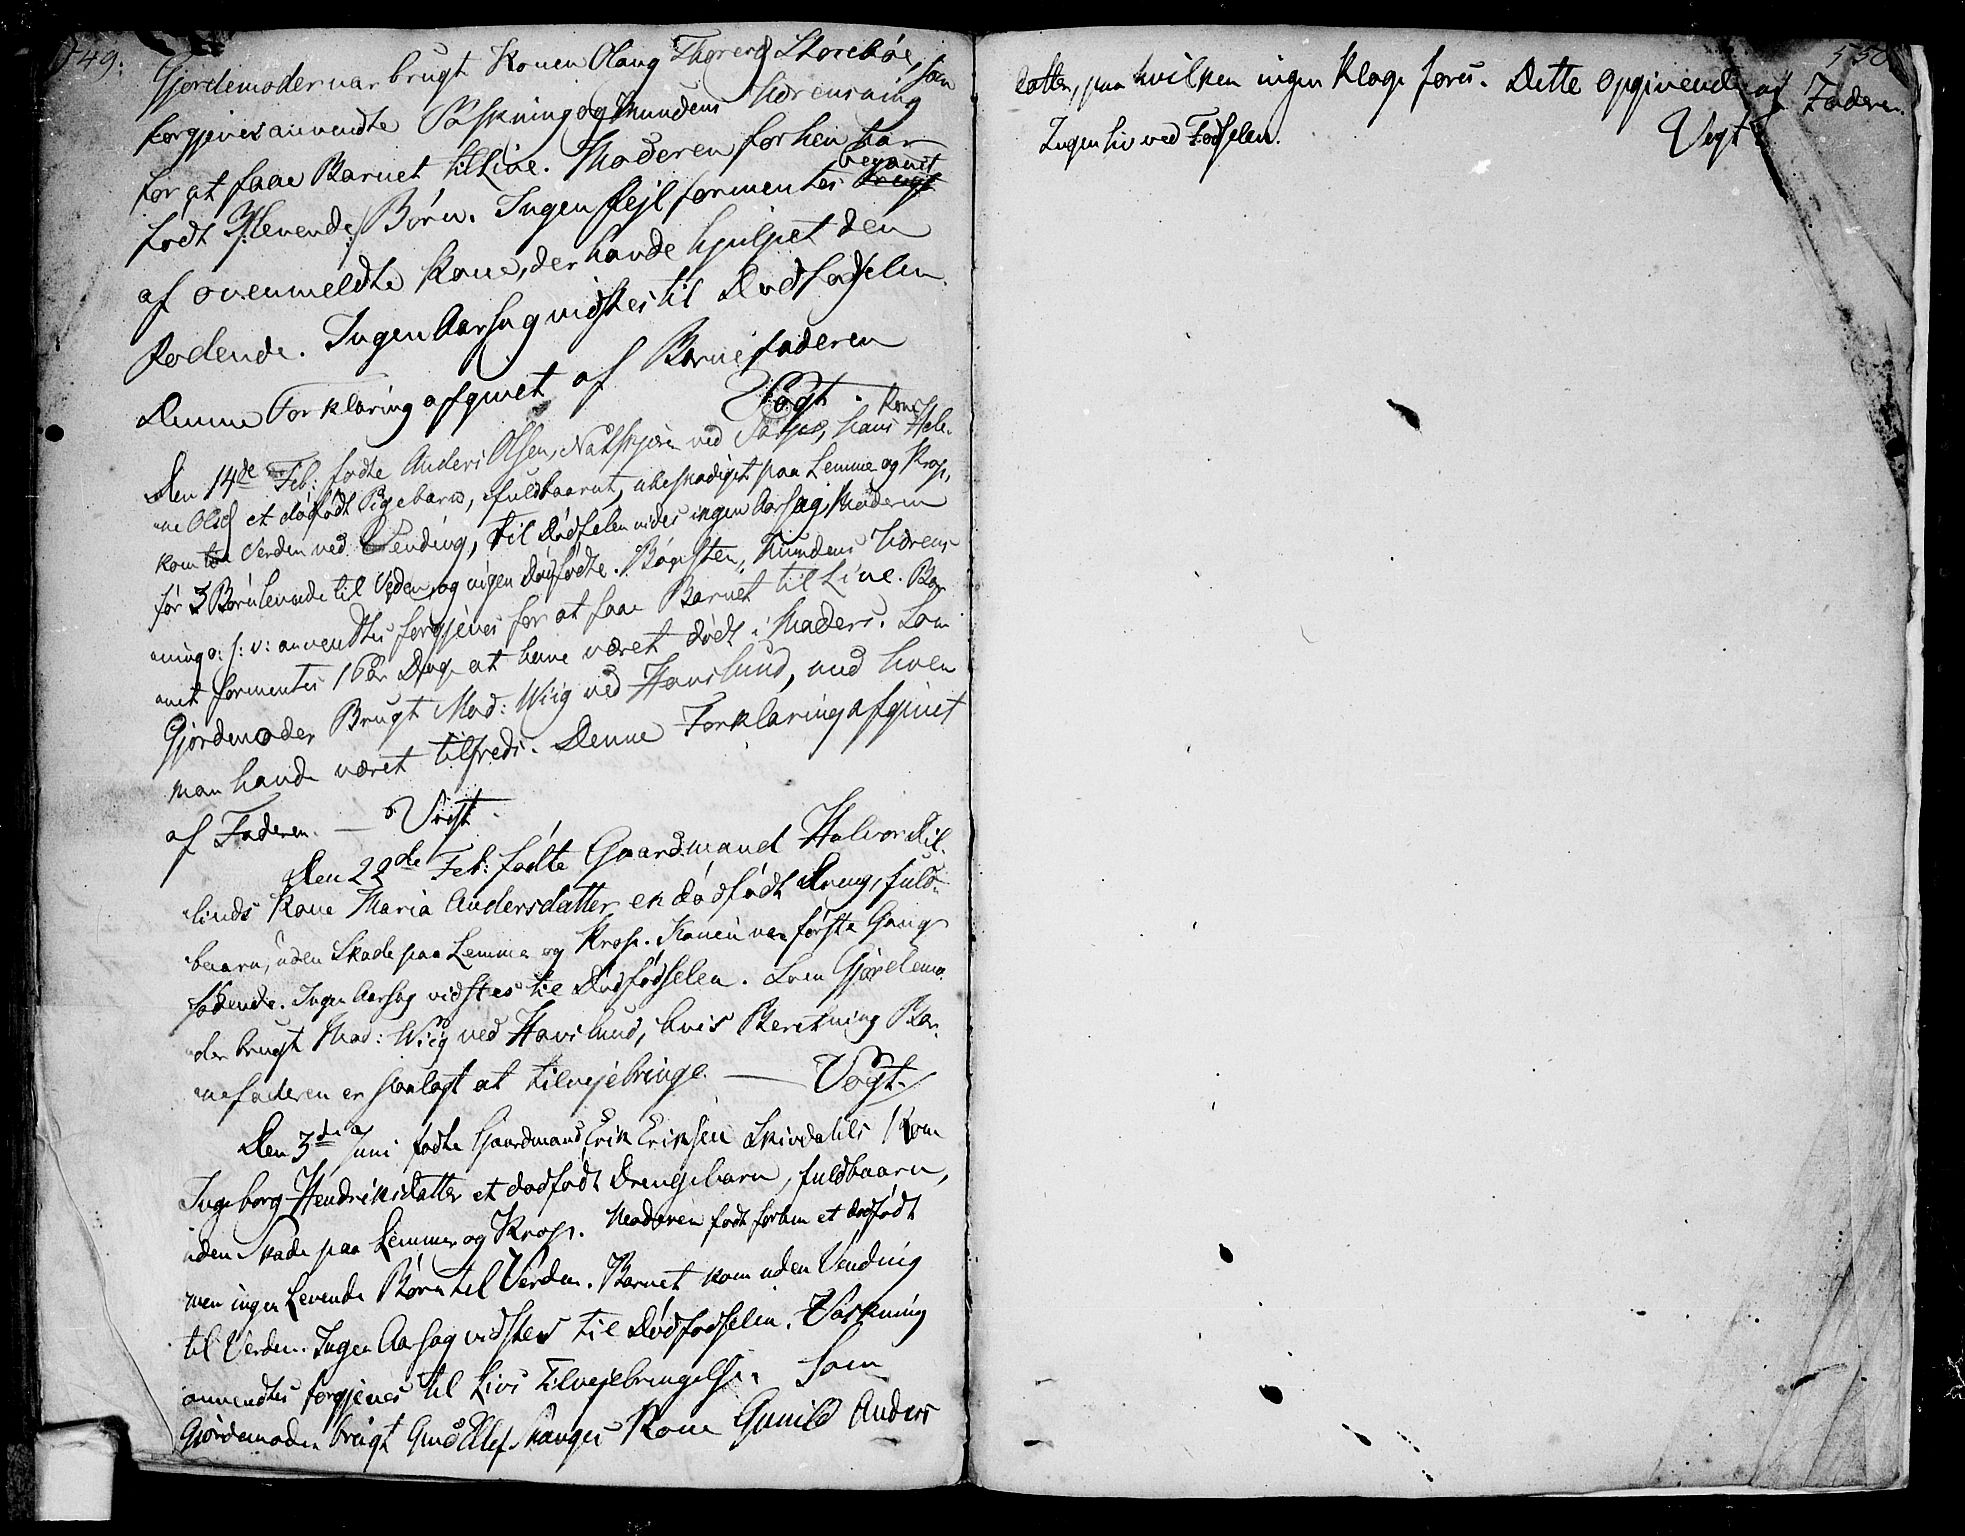 549.
Gjordemoder var brugt Konen Olaug Thoresd Storebøe, som
forgjeves anvendte Vaskning og Mundens Udrensning
for at faae Barnet til Live. Moderen forhen har
født 3 |: levende :| Børn. Ingen Fejl formentes begaaet
af ovenmeldte Kone, der havde hjulpet den
Fødende. Ingen Aarsag vidstes til Dødfødselen.
Denne Forklaring afgivet af Barnefaderen
Vogt.
Den 14de Feb: fødte Anders Olsen, Natskjøre ved hans Kone Hele-
ne Olsd et dødfødt Pigebarn, fuldbaarnt, ubeskadiget paa Lemmer og Krop,
kom til Verden ved Vending, til Dødfødselen vides ingen Aarsag, Moderen
før 3 Børn levende til Verden og ingen dødfødte. Børsten, Mundens Udrens-
ning o: s: v: anvendtes forgjeves for at faae Barnet til Live. Bar-
net formentes 1 Par Dage at have været dødt i Moders. Som
Gjordemoder Brugt Mad: Wiig ved Havslund, med hvem
man havde været tilfreds. Denne Forklaring afgivet
af Faderen. — Vogt.
Den 22de Feb: fødte Gaardmand Halvor Dil-
linds Kone Maria Andersdatter en dødfødt Dreng, fuld-
baaren, uden Skade paa Lemmer og Krop. Konen var første Gang
fødende. Ingen Aarsag vidstes til Dødfødselen. Som Gjordemo-
der brugt Mad: Wiig ved Havslund, hvis Beretning Bar-
nefaderen er paalagt at tilvejebringe. — Vogt.
Den 3de Juni fødte Gaardmand Erik Eriksen Skivdahls Kone
Ingeborg Hendriksdatter et dødfødt Drengebarn, fuldbaarn,
uden Skade paa Lemmer og Krop. Moderen født forhen et dødfødt
men ingen Levende Børn til Verden. Barnet kom uden Vending
til Verden. Ingen Aarsag vidstes til Dødfødselen. Vaskning
anvendtes forgjeves til Livs Tilvejebringelse. Som
Gjordemoder brugt Gmd Ellef Skanges Kone Gunild Anders
550
datter, paa hvilken ingen Klage føres. Dette Opgivende af Faderen.
Ingen Liv ved Fødselen. Vogt